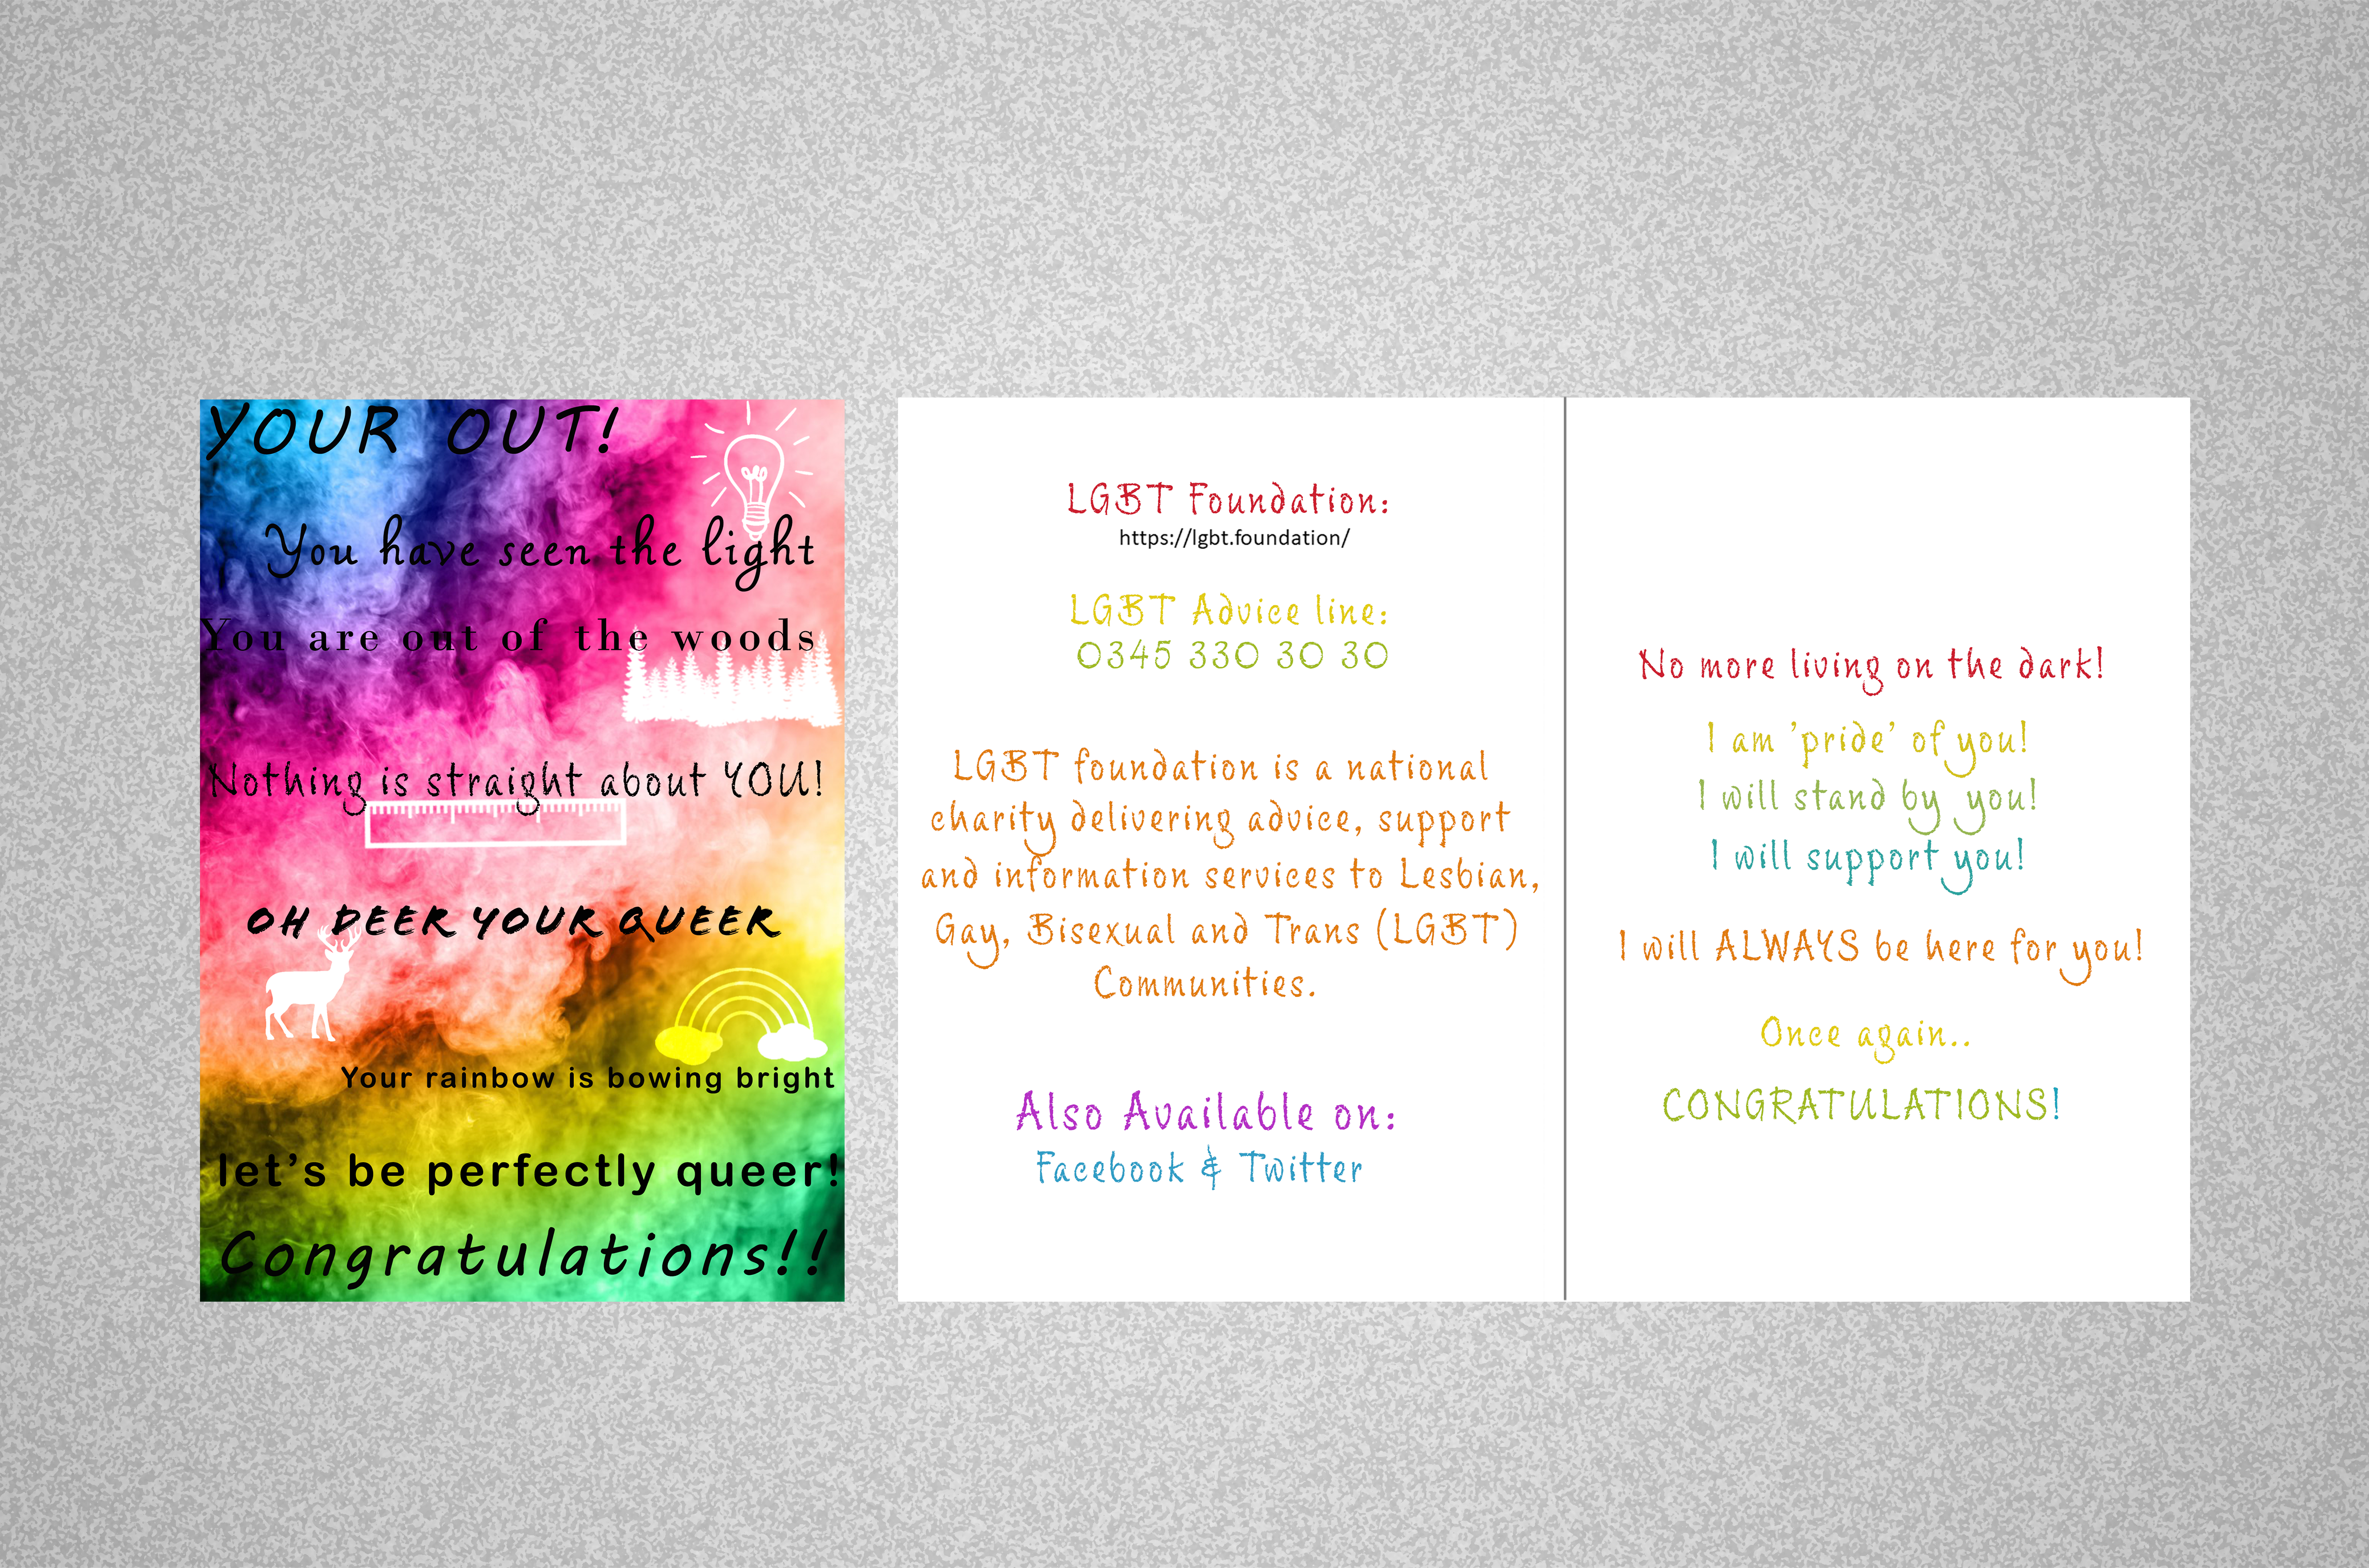 YOUR OUT!
You have seen the light
You are out of the woods
Nothing is straight about YOU!
OH DEER YOUR QUEER
Your rainbow is bowing bright
let's be perfectly queer!
Congratulations!!
LGBT Foundation:
https://lgbt.foundation/
LGBT Advice line:
0345 330 30 30
LGBT foundation is a national
charity delivering advice, support
and information services to Lesbian,
Gay, Bisexual and Trans (LGBT)
Communities.
Also Available on:
Facebook & Twitter
No more living on the dark!
I am 'pride' of you!
I will stand by you!
I will support you!
I will ALWAYS be here for you!
Once again..
CONGRATULATIONS!